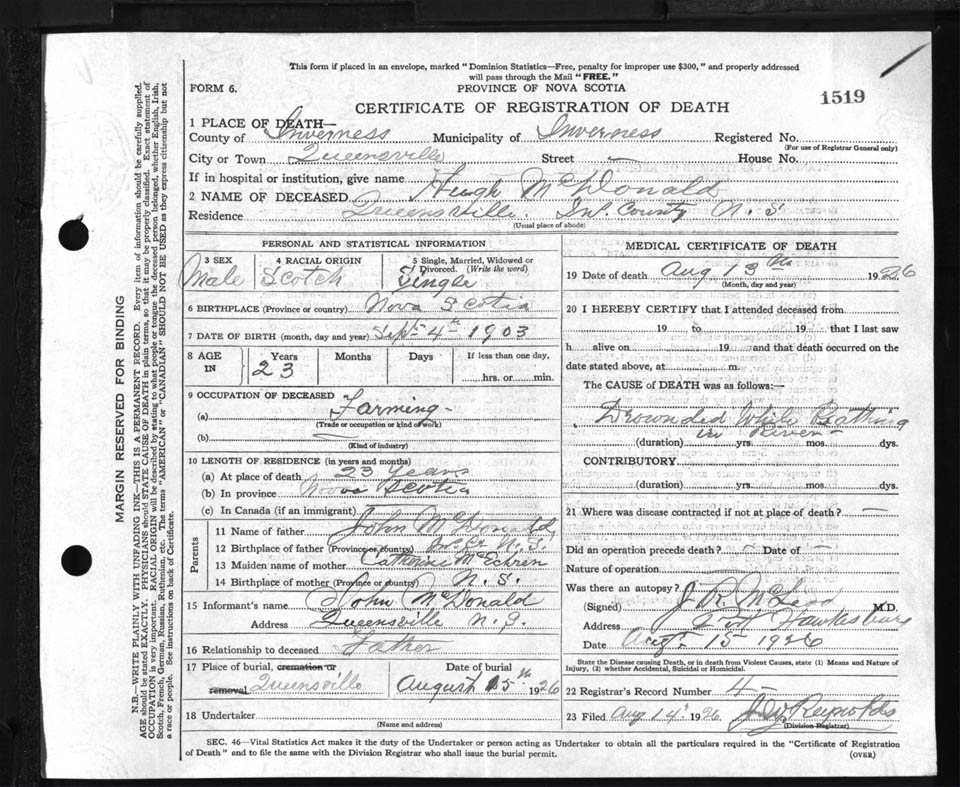 This form if placed in an envelope, marked " Dominion Statistics—Free, penalty for improper use $300, " and properly addressed
will pass through the Mail " FREE. "
FORM 6.
PROVINCE OF NOVA SCOTIA
1519
CERTIFICATE OF REGISTRATION OF DEATH
1 PLACE OF DEATH—
County of Inverness Municipality of Inverness Registered No.
(For use of Registrar General only)
City or Town Queensville Street — House No.
If in hospital or institution, give name
2 NAME OF DECEASED Hugh McDonald
Residence Queensville. Inv. County N. S
(Usual place of abode)
PERSONAL AND STATISTICAL INFORMATION
3 SEX 4 RACIAL ORIGIN 5 Single, Married, Widowed or Divorced. (Write the word)
Male Scotch Single
6 BIRTHPLACE (Province or country) Nova Scotia
7 DATE OF BIRTH (month, day and year) Sept 4th 1903
8 AGE IN Years Months Days If less than one day,
23 hrs. or min.
9 OCCUPATION OF DECEASED
(a) Farming -
(Trade or occupation or kind of work)
(b)
(Kind of industry)
10 LENGTH OF RESIDENCE (in years and months)
(a) At place of death 23 Years
(b) In province Nova Scotia
(c) In Canada (if an immigrant)
Parents
11 Name of father John McDonald
12 Birthplace of father (Province or country) Inv Co N. S.
13 Maiden name of mother Catherine McEchren
14 Birthplace of mother (Province or country) N. S.
15 Informant's name John McDonald
Address Queensville N. S.
16 Relationship to deceased Father
17 Place of burial, cremation or removal Queensville
Date of burial
August 15th 1926
18 Undertaker
(Name and address)
MEDICAL CERTIFICATE OF DEATH
19 Date of death Aug 13th 1926
(Month, day and year)
20 I HEREBY CERTIFY that I attended deceased from
19 to 19 that I last saw
h alive on 19 and that death occurred on the
date stated above, at m.
The CAUSE of DEATH was as follows:—
Drownded While Bathing
in River
(duration) yrs. mos. dys.
CONTRIBUTORY.
(duration) yrs. mos. dys.
21 Where was disease contracted if not at place of death? —
Did an operation precede death? - Date of —
Nature of operation
Was there an autopsy?
(Signed) J. R. McLeod M.D.
Address Port Hawkesbury
Date Aug 15 1926
State the Disease Causing Death, or in death from Violent Causes, state (1) Means and Nature of
Injury, (2) whether Accidental, Suicidal or Homicidal.
22 Registrar's Record Number 4 -
23 Filed Aug 14' 1926 Reynolds
(Division Registrar)
SEC. 46—Vital Statistics Act makes it the duty of the Undertaker or person acting as Undertaker to obtain all the particulars required in the "Certificate of Registration
of Death" and to file the same with the Division Registrar who shall issue the burial permit.
(OVER)
MARGIN RESERVED FOR BINDING
N.B.—WRITE PLAINLY WITH UNFADING INK—THIS IS A PERMANENT RECORD. Every item of information should be carefully supplied.
AGE should be stated EXACTLY. PHYSICIANS should STATE CAUSE OF DEATH in plain terms, so that it may be properly classified. Exact statement of
OCCUPATION is very important. RACIAL ORIGIN will be described by stating to what people or tongue the deceased person belonged, whether English, Irish,
Scotch, French, German, Russian, Ruthenian, etc. The terms "AMERICAN" or "CANADIAN" SHOULD NOT BE USED as they express citizenship but not
a race or people. See instructions on back of Certificate.